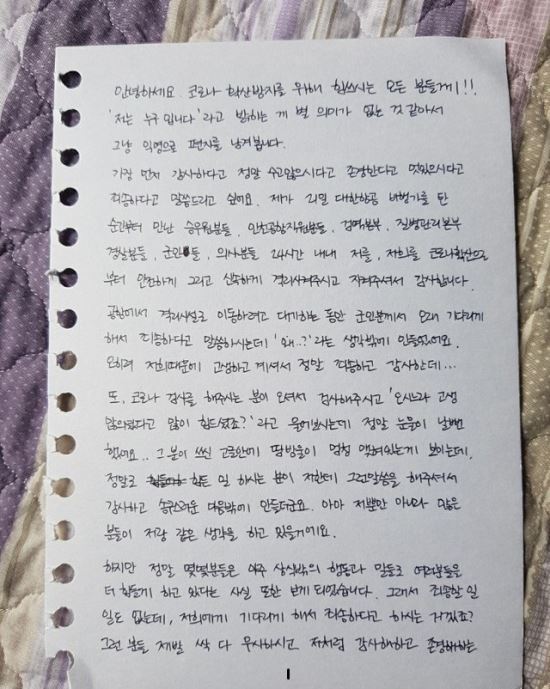 안녕하세요. 코로나 확산방지를 위해 힘쓰시는 모든 분들께!!
'저는 누구입니다'라고 밝히는 게 별 의미가 없는 것 같아서
그냥 익명으로 편지를 남겨봅니다.
가장 먼저 감사하다고 정말 수고많으시다고 존경한다고 멋있으시다고
죄송하다고 말씀드리고 싶어요. 제가 리밀 대한항공 비행기를 탄
순간부터 만난 승무원분들, 인천공항직원분들, 검역본부, 질병관리본부
경찰분들, 군인분들, 의사분들 24시간 내내 저를, 저희를 코로나확산으로
부터 안전하게 그리고 신속하게 격리시켜주시고 지켜주셔서 감사합니다.
공항에서 격리시설로 이동하려고 대기하는 동안 군인분께서 오래 기다리게
해서 죄송하다고 말씀하시는데 '왜..?' 라는 생각밖에 안들었어요.
오히려 저희때문에 고생하고 계셔서 정말 죄송하고 감사한데...
또, 코로나 검사를 해주시는 분이 오셔서 검사해주시고 '오시느라 고생
많으셨다고 많이 힘드셨죠?' 라고 물어보시는데 정말 눈물이 날뻔
했어요.. 그 분이 쓰신 고글안에 땀방울이 엄청 맺혀있는게 보이는데,
정말로 힘든 일 하시는 분이 저한테 그런말씀을 해주셔서
감사하고 송구스러운 마음밖에 안들더군요. 아마 저뿐만 아니라 많은
분들이 저랑 같은 생각을 하고 있을거예요.
하지만 정말 몇몇분들은 아주 상식밖의 행동과 말들로 여러분들을
더 힘들게 하고 있다는 사실 또한 보게 되었습니다. 그래서 죄송할 일
일도 없는데, 저희에게 기다리게 해서 죄송하다고 하시는 거겠죠?
그런 분들 제발 싹 다 무시하시고 저처럼 감사해하고 존경해하는
1